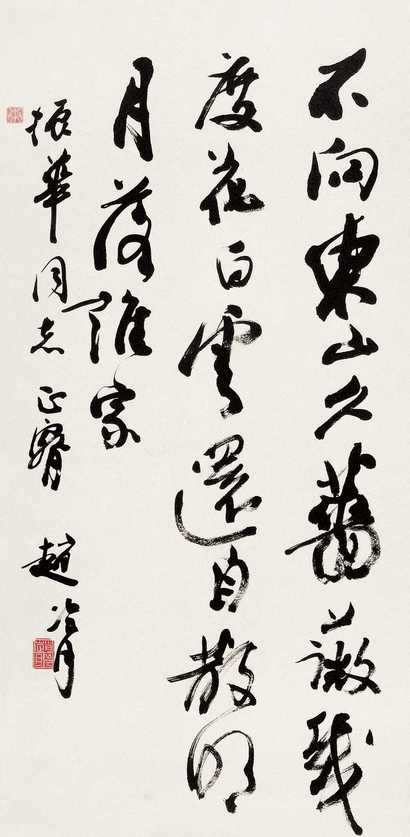 不向東山久薔薇幾
度花白雲還自散明
月落誰家
振華同志正腕 趙冷月